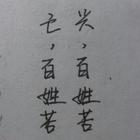 兴，百姓苦
亡，百姓苦